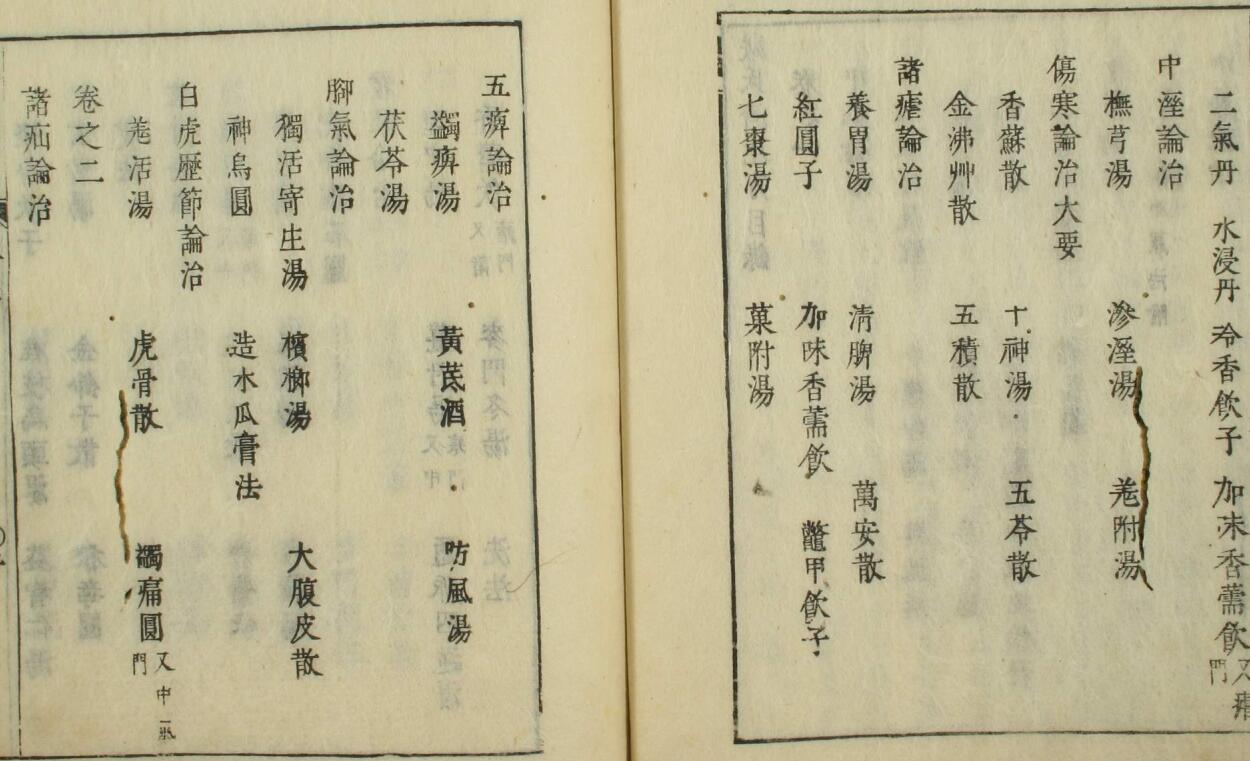 二氣丹 水浸丹 冷香飲子 加味香薷飲 又瘧門
中溼論治
撫芎湯 滲溼湯 羌附湯
傷寒論治大要
香蘇散 十神湯 五苓散
金沸艸散 五積散
諸瘧論治
養胃湯 清脾湯 萬安散
紅圓子 加味香薷飲 鼈甲飲子
七棗湯 菓附湯
五痺論治
蠲痺湯 黃茋酒 防風湯
茯苓湯
腳氣論治
獨活寄生湯 檳榔湯 大腹皮散
神烏圓 造木瓜膏法
白虎歷節論治
羌活湯 虎骨散 蠲痛圓 又中氣門
卷之二
諸疝論治